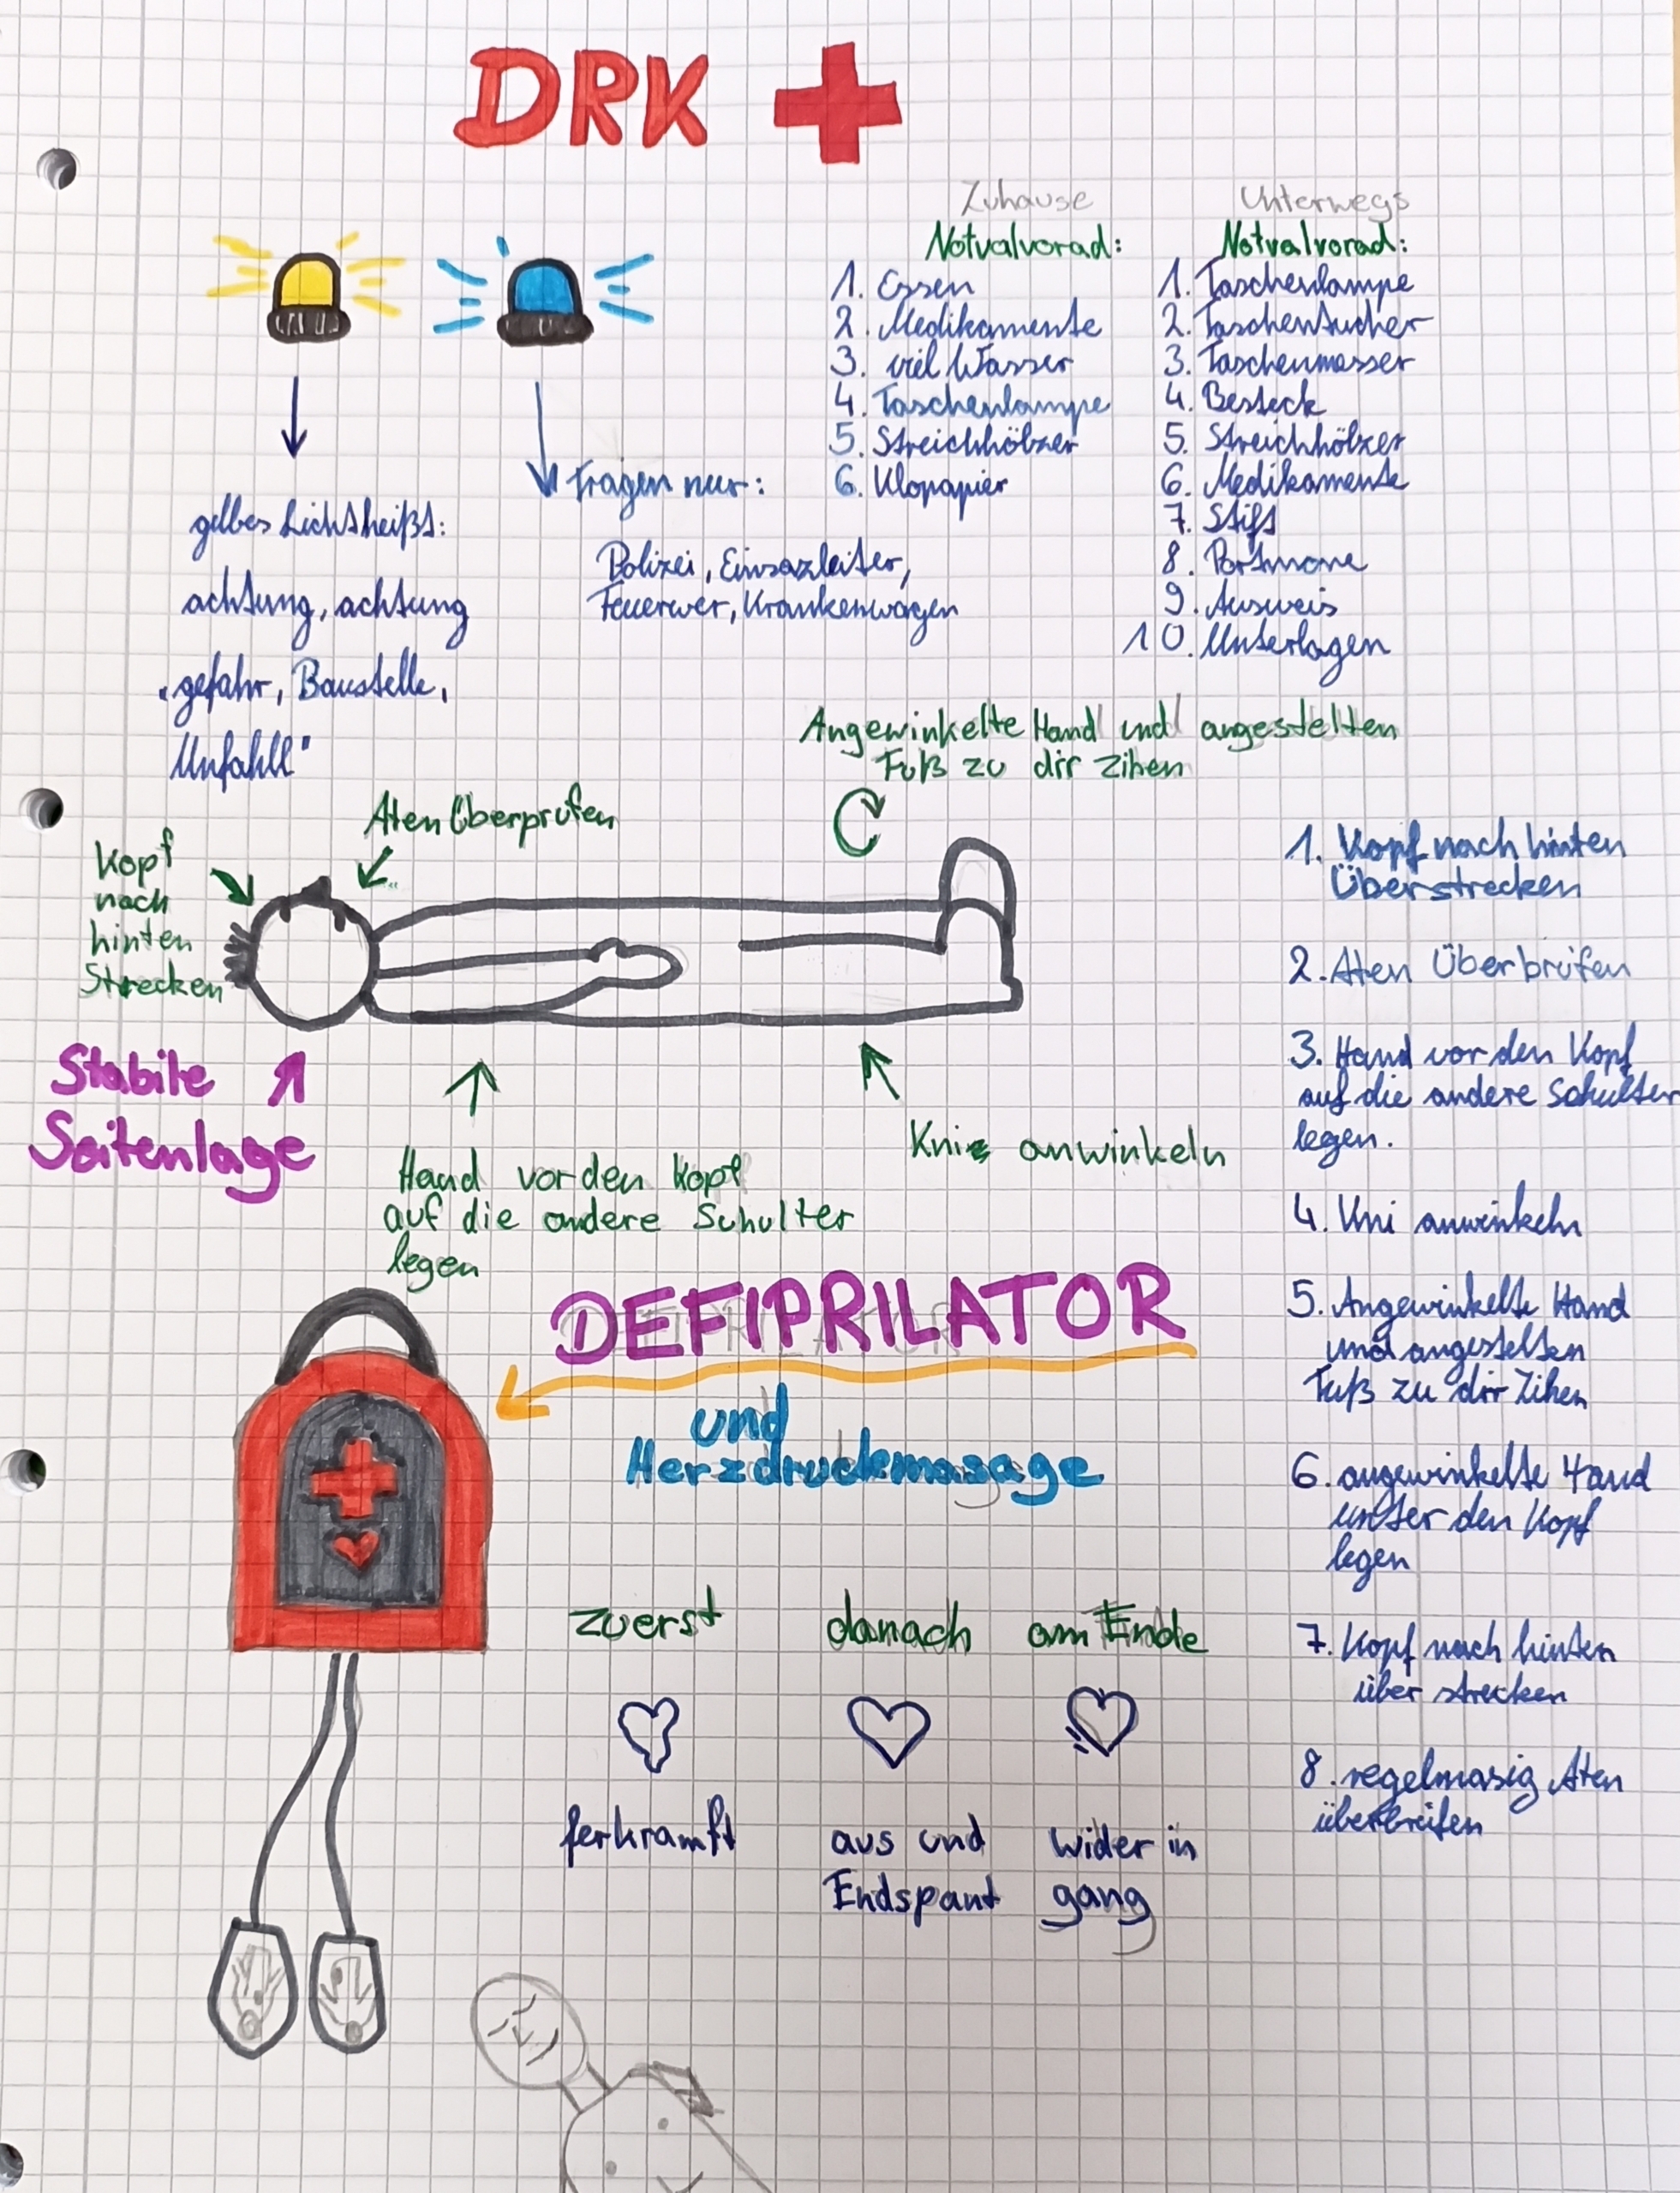 DRK
Zuhause
Notvalvorad:
1. Essen
2. Medikamente
3. viel Wasser
4. Taschenlampe
5. Streichhölzer
6. Klopapier
Unterwegs
Notvalvorad:
1. Taschenlampe
2. Taschentucher
3. Taschenmesser
4. Besteck
5. Streichhölzer
6. Medikamente
7. Stift
8. Portmone
9. Ausweis
10. Unterlagen
gelbes Licht heißt:
achtung, achtung
„gefahr, Baustelle,
Unfahll"
Tragen nur:
Polizei, Einsazleiter,
Feuerwer, Krankenwagen
Angewinkelte Hand und angestelten
Fuß zu dir zihen
Aten Überprüfen
Kopf
nach
hinten
Strecken
Stabile
Seitenlage
Hand vor den Kopf
auf die andere Schulter
legen
Knie anwinkeln
1. Kopf nach hinten
Überstrecken
2. Aten Überbrüfen
3. Hand vor den Kopf
auf die andere Schulter
legen.
4. Kni anwinkeln
5. Angewinkelte Hand
und angestelten
Fuß zu dir Zihen
6. angewinkelte Hand
unter den Kopf
legen
7. Kopf nach hinten
über strecken
8. regelmasig Aten
überbreifen
DEFIPRILATOR
und
Herzdruckmasage
zuerst danach am Ende
ferkramft aus und wider in
Endspant gang